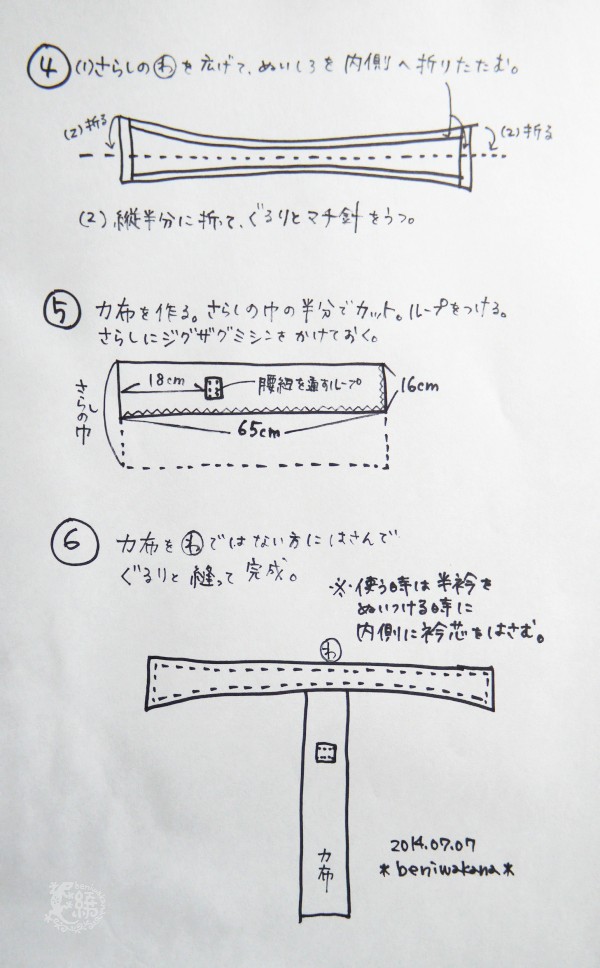 ④ (1)さらしの㋻を広げて、ぬいしろを内側へ折りたたむ。
(2)折る
(2)折る
(2)縦半分に折って、ぐるりとマチ針をうつ。
⑤ 力布を作る。さらしの巾の半分でカット。ループをつける。
さらしにジグザグミシンをかけておく。
さらしの巾
18cm
腰紐を通すループ
16cm
65cm
⑥ 力布をわではない方にはさんで
ぐるりと縫って完成。
※使う時は半衿を
ぬいつける時に
内側に衿芯をはさむ。
わ
力布
2014.07.07
*beniwakana*